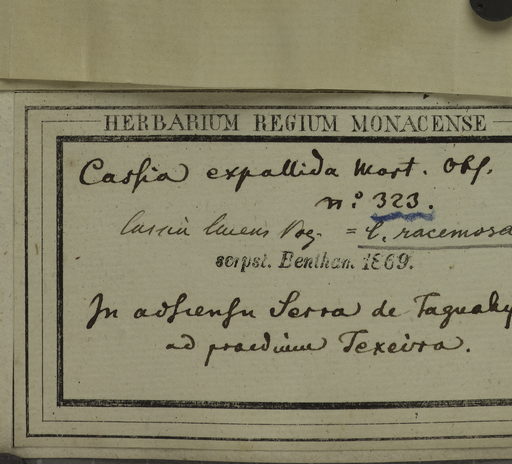 HERBARIUM REGIUM MONACENSE
Cassia expallida Mart. Obs.
n.º 323.
Cassia Vog. = C. racemosa
scrpst. Bentham. 1869.
In adscensu Serra de Taguahy
ad praedium Texeira.